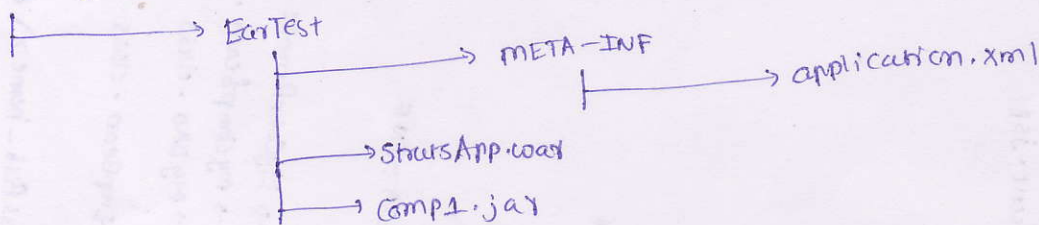 EarTest
META-INF
application.xml
StrutsApp.war
Comp1.jar